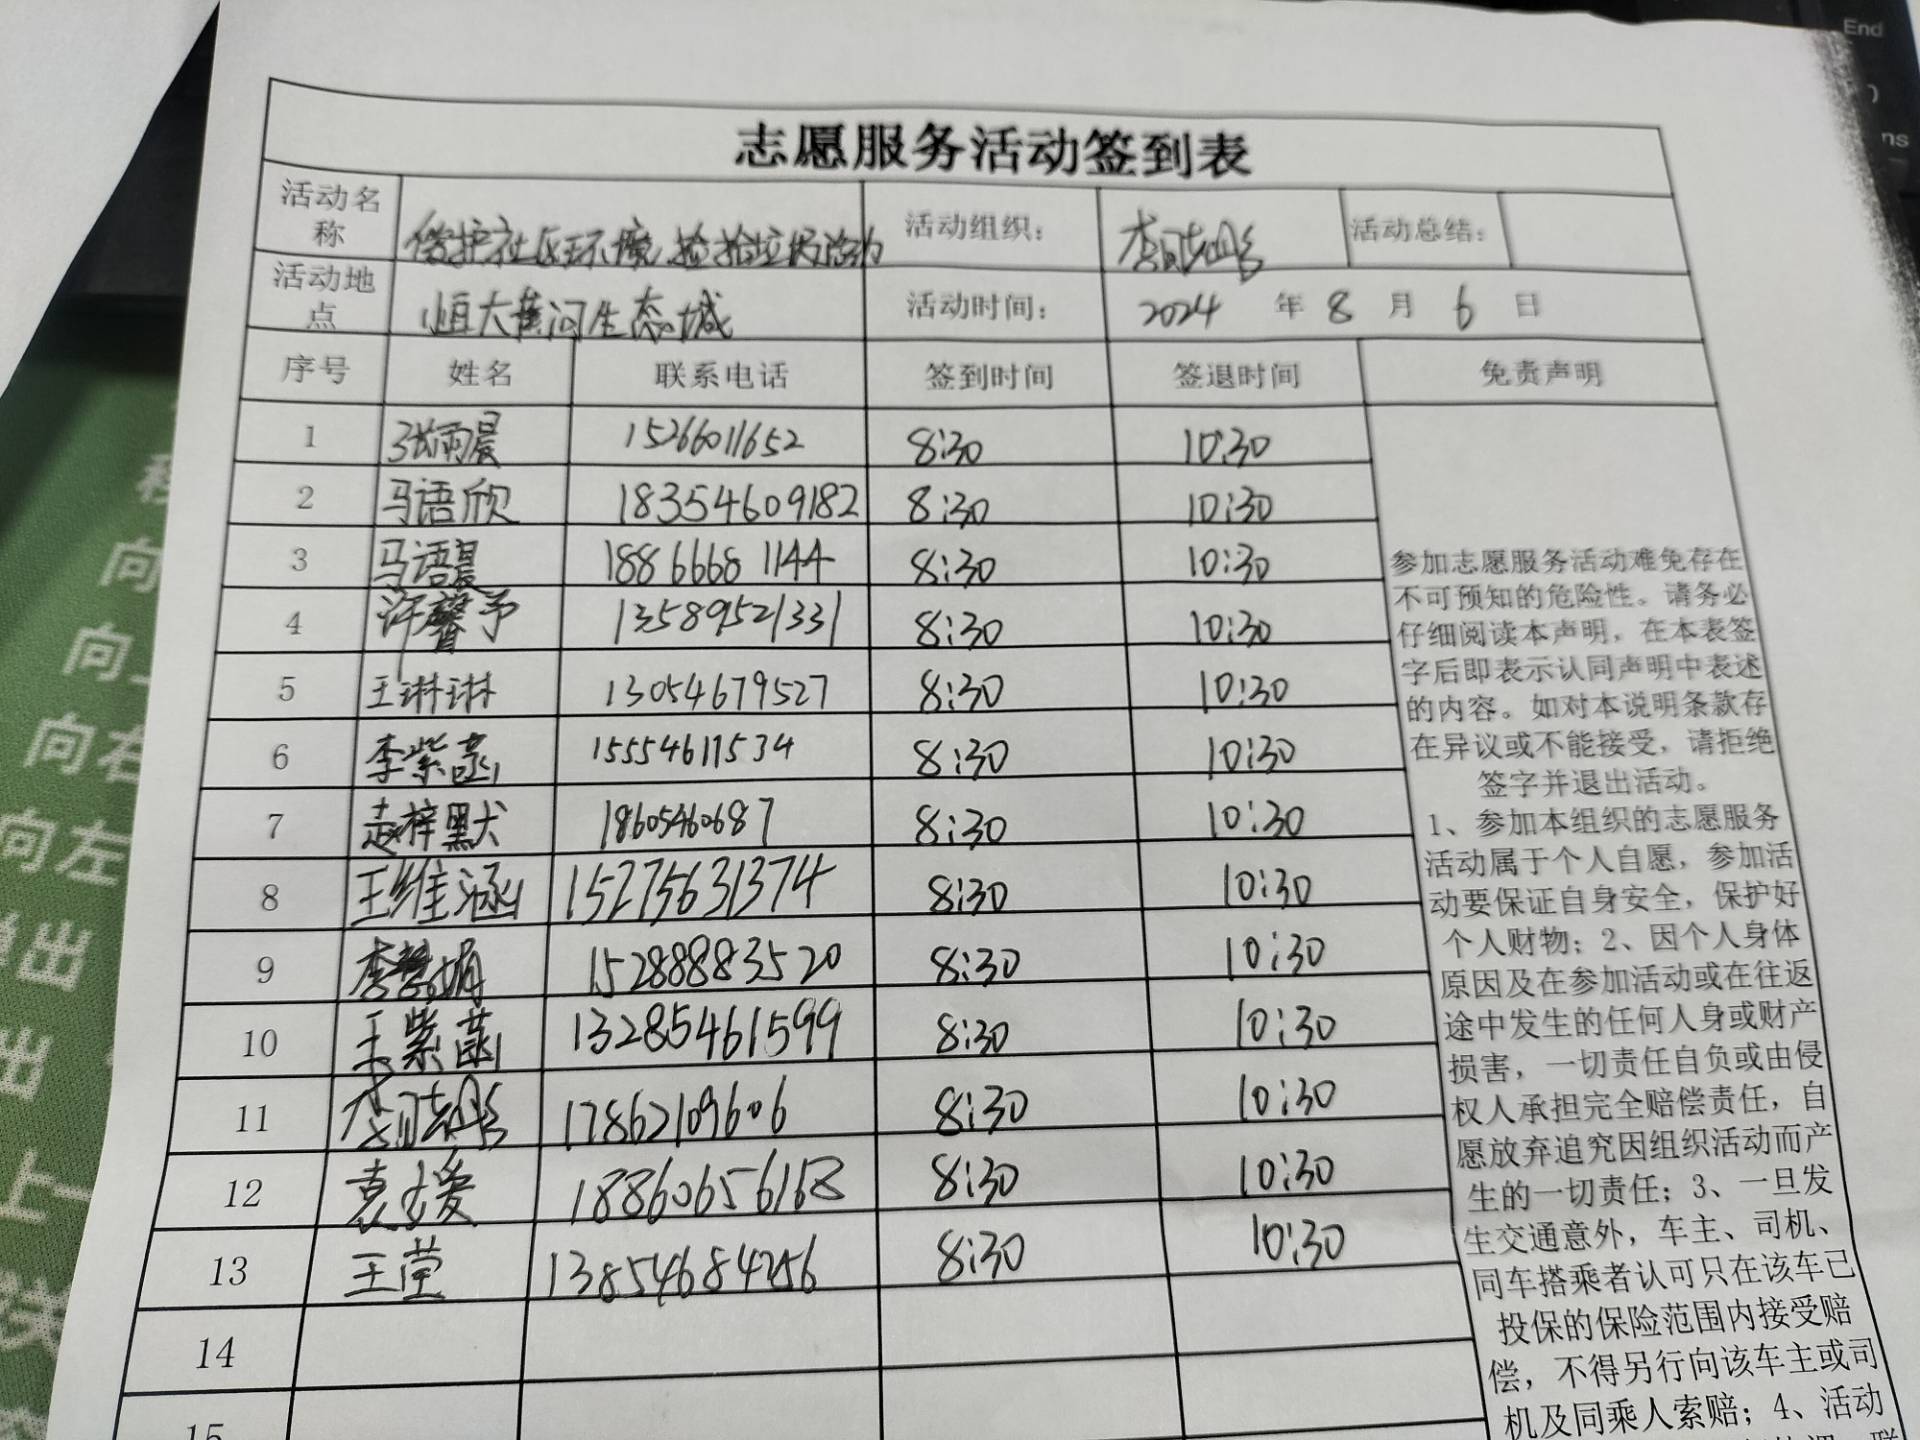 End
ns
志愿服务活动签到表
活动名称 保护社区环境,捡拾垃圾活动 活动组织: 活动总结:
活动地点 恒大黄河生态城 活动时间: 2024 年 8 月 6 日
序号 姓名 联系电话 签到时间 签退时间 免责声明
1 张雨晨 15266011652 8:30 10:30
2 马语欣 18354609182 8:30 10:30
3 马语晨 18866681144 8:30 10:30
4 许馨予 13589521331 8:30 10:30
5 王琳琳 13054679527 8:30 10:30
6 李紫菡 15554611534 8:30 10:30
7 赵梓默 18605460687 8:30 10:30
8 王维涵 15275631374 8:30 10:30
9 李 娟 15288883520 8:30 10:30
10 王紫菡 13285461599 8:30 10:30
11 17862109606 8:30 10:30
12 袁媛 18860656168 8:30 10:30
13 王莹 13854684256 8:30 10:30
14
15
参加志愿服务活动难免存在
不可预知的危险性。请务必
仔细阅读本声明,在本表签
字后即表示认同声明中表述
的内容。如对本说明条款存
在异议或不能接受,请拒绝
签字并退出活动。
1、参加本组织的志愿服务
活动属于个人自愿,参加活
动要保证自身安全,保护好
个人财物;2、因个人身体
原因及在参加活动或在往返
途中发生的任何人身或财产
损害,一切责任自负或由侵
权人承担完全赔偿责任,自
愿放弃追究因组织活动而产
生的一切责任;3、一旦发
生交通意外,车主、司机、
同车搭乘者认可只在该车已
投保的保险范围内接受赔
偿,不得另行向该车主或司
机及同乘人索赔;4、活动
向
向
向右
向左
出
出
上一